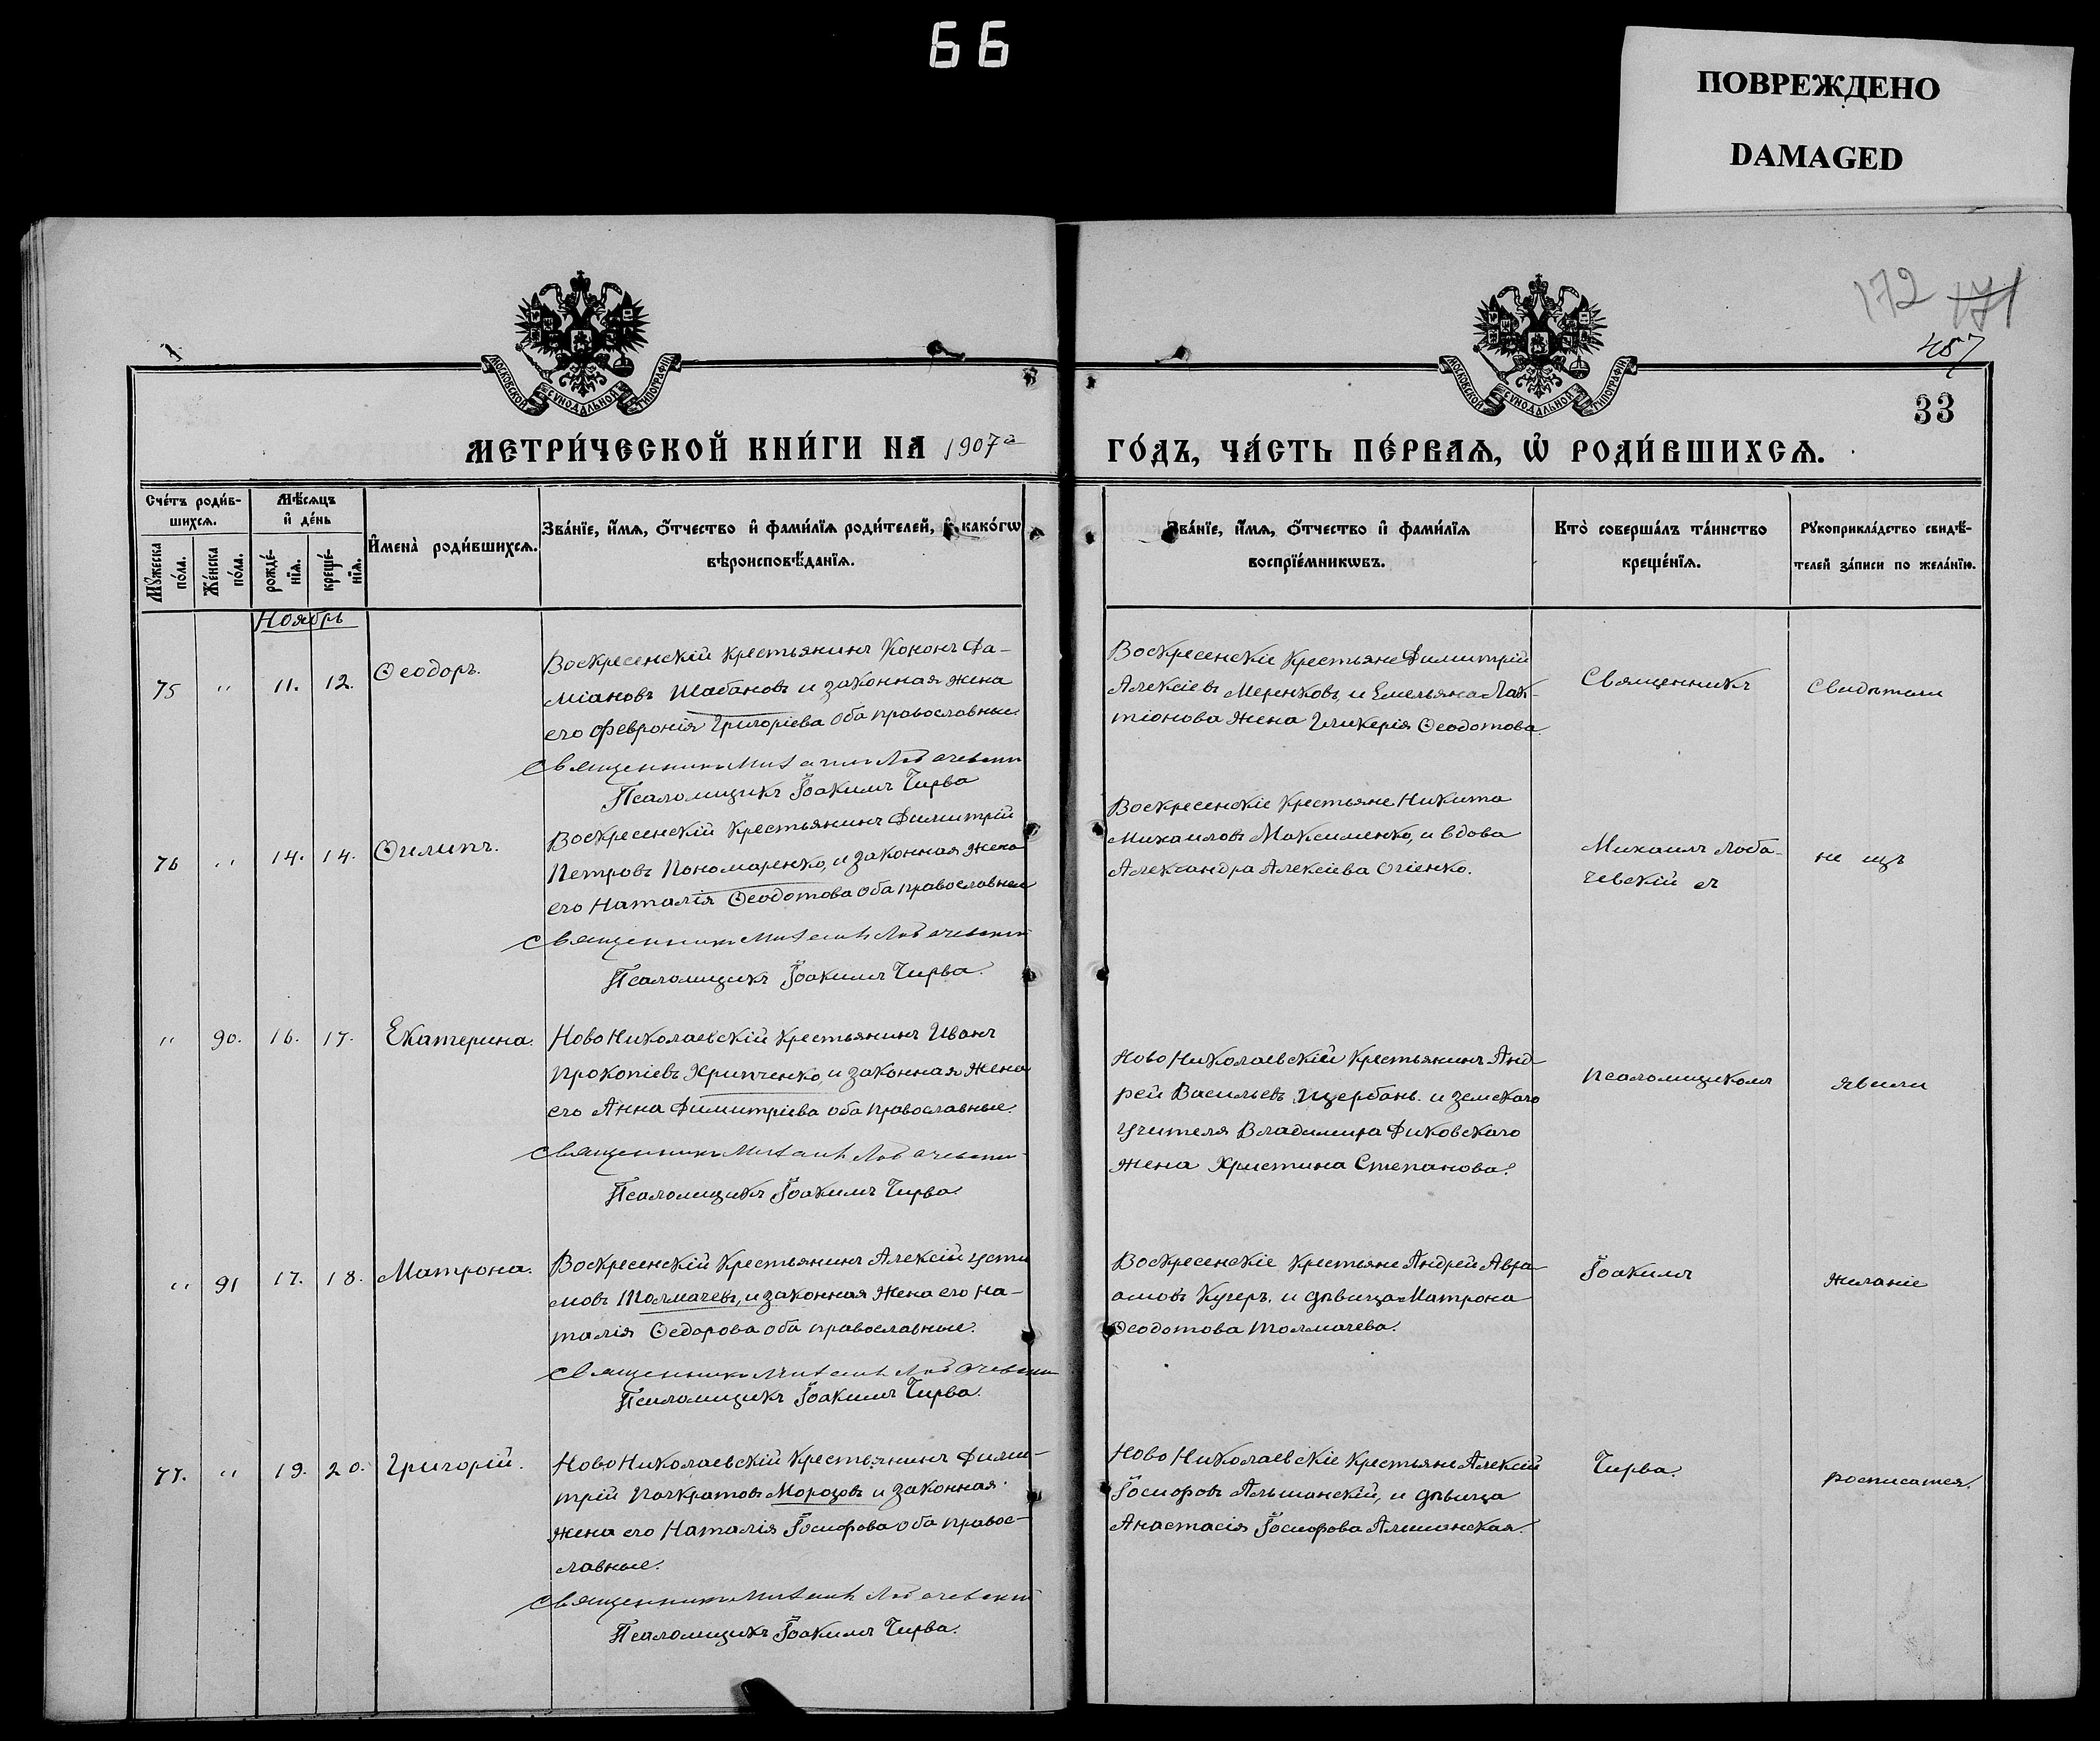 66
ПОВРЕЖДЕНО
DAMAGED
МОСКОВСКОЙ СѴНОДАЛЬНОЙ ТИПОГРАФІИ
МОСКОВСКОЙ СѴНОДАЛЬНОЙ ТИПОГРАФІИ
172 171
457
33
МЕТРИ́ЧЕСКОЙ КНИ́ГИ НА 1907 ГО́ДЪ, ЧА́СТЬ ПЕ́РВАѦ, Ѡ҆ РОДИ́ВШИХСѦ.
Сче́тъ роди́в-
шихсѧ.
Мꙋ́жеска по́ла.
Же́нска по́ла.
Мѣ́сѧцъ
и҆ де́нь
рожде́-
нїѧ.
креще́-
нїѧ.
И҆мена̀ роди́вшихсѧ.
Зва́нїе, и҆́мѧ, ѻ҆́тчество и҆ фами́лїѧ роди́телей, и҆ како́гѡ
вѣроисповѣ́данїѧ.
Зва́нїе, и҆́мѧ, ѻ҆́тчество и҆ фами́лїѧ
воспрїе́мникѡвъ.
Кто̀ соверша́лъ та́инство
креще́нїѧ.
Рꙋкоприкла́дство свидѣ́-
телей за́писи по жела́нїю.
Ноябрь
75 " 11. 12. Ѳеодоръ.
Воскресенскій крестьянинъ Кононъ Да-
міановъ Шабановъ и законная жена
его Февронія Григоріева оба православные
Священникъ Михаилъ Лобачевскій
Псаломщикъ Іоакимъ Чирва
Воскресенскіе крестьяне Димитрій
Алексіевъ Меренковъ, и Емельяна Лак-
тіонова жена Гликерія Ѳеодотова.
Священникъ
Свидѣтели
76 " 14. 14. Ѳилипъ.
Воскресенскій крестьянинъ Димитрій
Петровъ Пономаренко, и законная жена
его Наталія Ѳеодотова оба православные
Священникъ Михаилъ Лобачевскій
Псаломщикъ Іоакимъ Чирва.
Воскресенскіе крестьяне Никита
Михаиловъ Максименко, и вдова
Александра Алексіева Огіенко.
Михаилъ Лоба-
чевскій съ
не изъ
" 90. 16. 17. Екатерина.
Ново Николаевскій крестьянинъ Иванъ
Прокопіевъ Хрипченко, и законная жена
его Анна Димитріева оба православные.
Священникъ Михаилъ Лобачевскій
Псаломщикъ Іоакимъ Чирва.
Ново Николаевскій крестьянинъ Анд-
рей Васильевъ Щербань. и земскаго
учителя Владимира Диковскаго
жена Христина Степанова.
псаломщикомъ
явили
" 91 17. 18. Матрона.
Воскресенскій крестьянинъ Алексій Усти
мовъ Толмачевъ, и законная жена его На-
талія Ѳедорова оба православные.
Священникъ Михаилъ Лобачевскій
Псаломщикъ Іоакимъ Чирва.
Воскресенскіе крестьяне Андрей Авра-
амовъ Кучеръ. и дѣвица Матрона
Ѳеодотова Толмачева.
Іоакимъ
желаніе
77. " 19. 20. Григорій.
Ново Николаевскій крестьянинъ Дими-
трій Панкратовъ Морозовъ и законная
жена его Наталія Іосифова оба правос-
лавные.
Священникъ Михаилъ Лобачевскій
Псаломщикъ Іоакимъ Чирва.
Ново Николаевскіе крестьяне Алексій
Іосифовъ Альшанскій, и дѣвица
Анастасія Іосифова Алшанская.
Чирва.
росписатся.